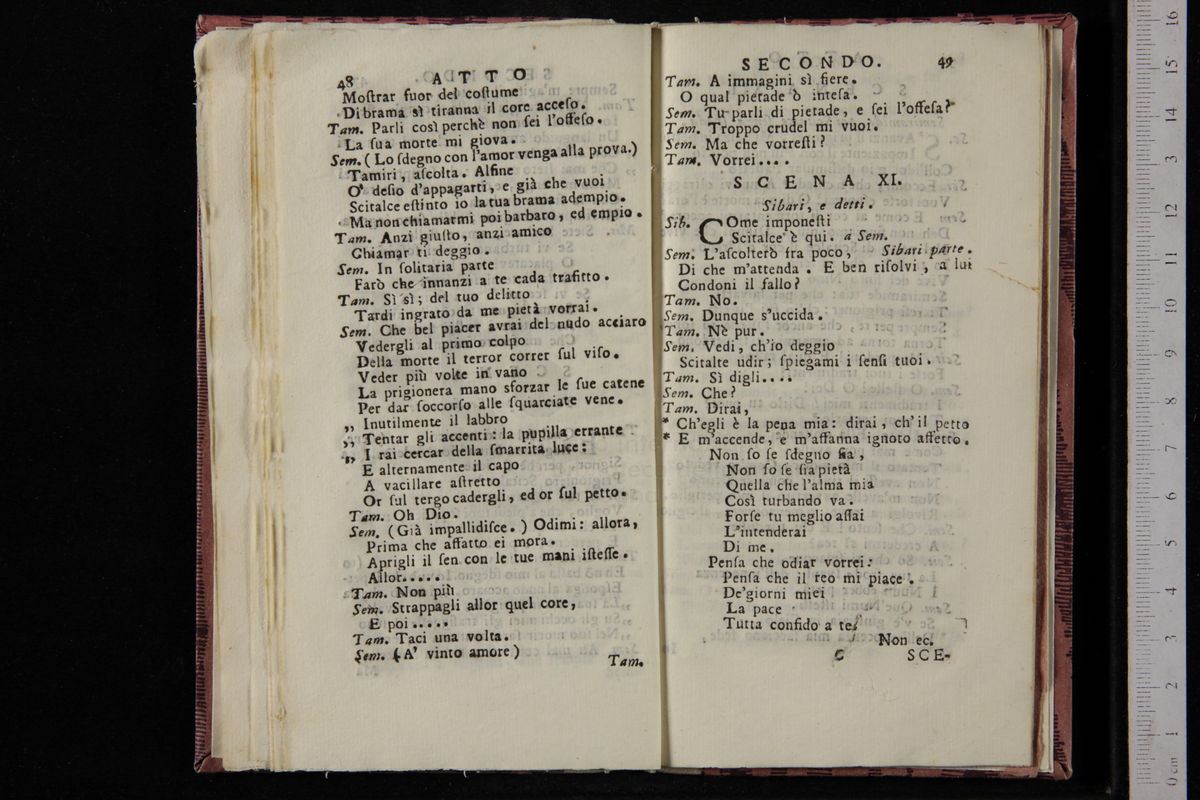 48 ATTO
Moſtrar fuor del coſtume
Di brama sì tiranna il core acceſo.
Tam. Parli così perchè non ſei l'offeſo.
La ſua morte mi giova.
Sem. (Lo ſdegno con l'amor venga alla prova.)
Tamiri, aſcolta. Alfine
O' deſio d'appagarti, e già che vuoi
Scitalce eſtinto io la tua brama adempio.
Ma non chiamarmi poi barbaro, ed empio.
Tam. Anzi giuſto, anzi amico
Chiamar ti deggio.
Sem. In ſolitaria parte
Farò che innanzi a te cada trafitto.
Tam. Sì sì; del tuo delitto
Tardi ingrato da me pietà vorrai.
Sem. Che bel piacer avrai del nudo acciaro
Vedergli al primo colpo
Della morte il terror correr ſul viſo.
Veder più volte in vano
La prigionera mano sforzar le ſue catene
Per dar ſoccorſo alle ſquarciate vene.
„ Inutilmente il labbro
„ Tentar gli accenti: la pupilla errante
„ I rai cercar della ſmarrita luce:
E alternamente il capo
A vacillare aſtretto
Or ſul tergo cadergli, ed or ſul petto.
Tam. Oh Dio.
Sem. (Già impallidiſce.) Odimi: allora,
Prima che affatto ei mora.
Aprigli il ſen con le tue mani iſteſſe.
Allor.....
Tam. Non più
Sem. Strappagli allor quel core,
E poi.....
Tam. Taci una volta.
Sem. (A' vinto amore)
Tam.
SECONDO. 49
Tam. A immagini sì fiere.
O qual pietade ò inteſa.
Sem. Tu parli di pietade, e ſei l'offeſa?
Tam. Troppo crudel mi vuoi.
Sem. Ma che vorreſti?
Tam. Vorrei....
SCENA XI.
Sibari, e detti.
Sib. COme imponeſti
Scitalce è qui. a Sem.
Sem. L'aſcolterò fra poco, Sibari parte.
Di che m'attenda. E ben riſolvi, a lui
Condoni il fallo?
Tam. No.
Sem. Dunque s'uccida.
Tam. Nè pur.
Sem. Vedi, ch'io deggio
Scitalte udir; ſpiegami i ſenſi tuoi.
Tam. Sì digli....
Sem. Che?
Tam. Dirai,
* Ch'egli è la pena mia: dirai, ch'il petto
* E m'accende, e m'affanna ignoto affetto.
Non ſo ſe ſdegno ſia,
Non ſo ſe ſia pietà
Quella che l'alma mia
Così turbando va.
Forſe tu meglio aſſai
L'intenderai
Di me.
Penſa che odiar vorrei:
Penſa che il reo mi piace.
De'giorni miei
La pace
Tutta confido a te.
Non ec.
C SCE-